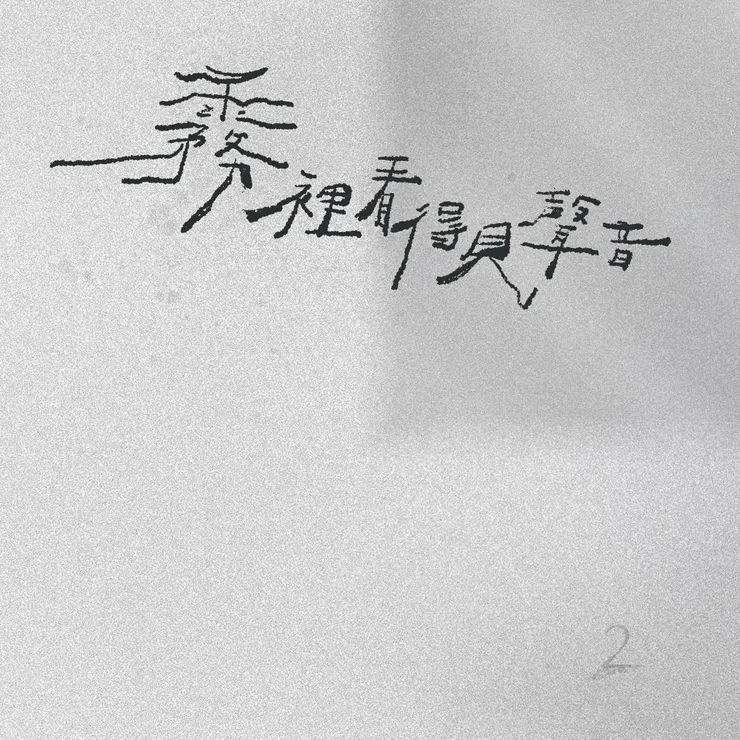 霧裡看得見聲音
2